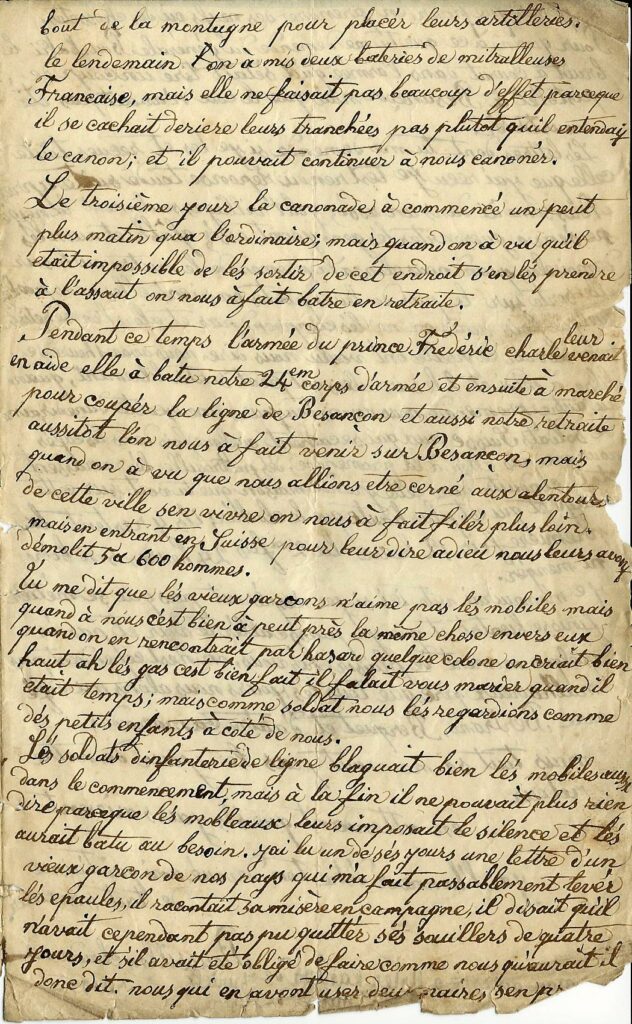 bout de la montagne pour placér leurs artilleries.
le lendemain l'on à mis deux bateries de mitralleuses
Francaise, mais elle ne faisait pas beaucoup d'effet parceque
il se cachait deriere leurs tranchées pas plutot quil entendaij
le canon; et il pouvait continuer à nous canonér.
Le troisième jour la canonade à commencé un petit
plus matin qua l'ordinaire; mais quand on à vu qu'il
etait impossible de lés sortir de cet endroit s'en lés prendre
à l'assaut on nous à fait batre en retraite.
Pendant ce temps l'armée du prince Frédéric charle leur venait
en aide elle à batu notre 24em corps d'armée et ensuite à marché
pour coupér la ligne de Besançon et aussi notre retraite
aussitot l'on nous à fait venir sur Besançon, mais
quand on à vu que nous allions etre cerné aux alentours
de cette ville sen vivre on nous à fait filér plus loin.
mais en entrant en Suisse pour leur dire adieu nous leurs avons
démolit 5 a 600 hommes.
Tu me dit que lés vieux garçons n'aime pas lés mobiles mais
quand à nous c'est bien à peut près la même chose envers eux
quand on en rencontrait par hasard quelque colone on criait bien
haut ah lés gas cest bien fait il falait vous marier quand il
était temps; mais comme soldat nous lés regardions comme
dés petits enfants à coté de nous.
Lés soldats d'infanterie de ligne blaguait bien lés mobiles aussi
dans le commencement, mais à la fin il ne pouvait plus rien
dire parceque lés mobleaux leurs imposait le silence et lés
aurait batu au besoin. j'ai lu un de sés jours une lettre d'un
vieux garçon de nos pays qui m'a fait passablement levér
lés epaules, il racontait sa misère en campagne, il disait qu'il
n'avait cependant pas pu quitter sés souillers de quatre
jours, et s'il avait été obligé de faire comme nous qu'aurait il
donc dit. nous qui en avont user deux paires sen